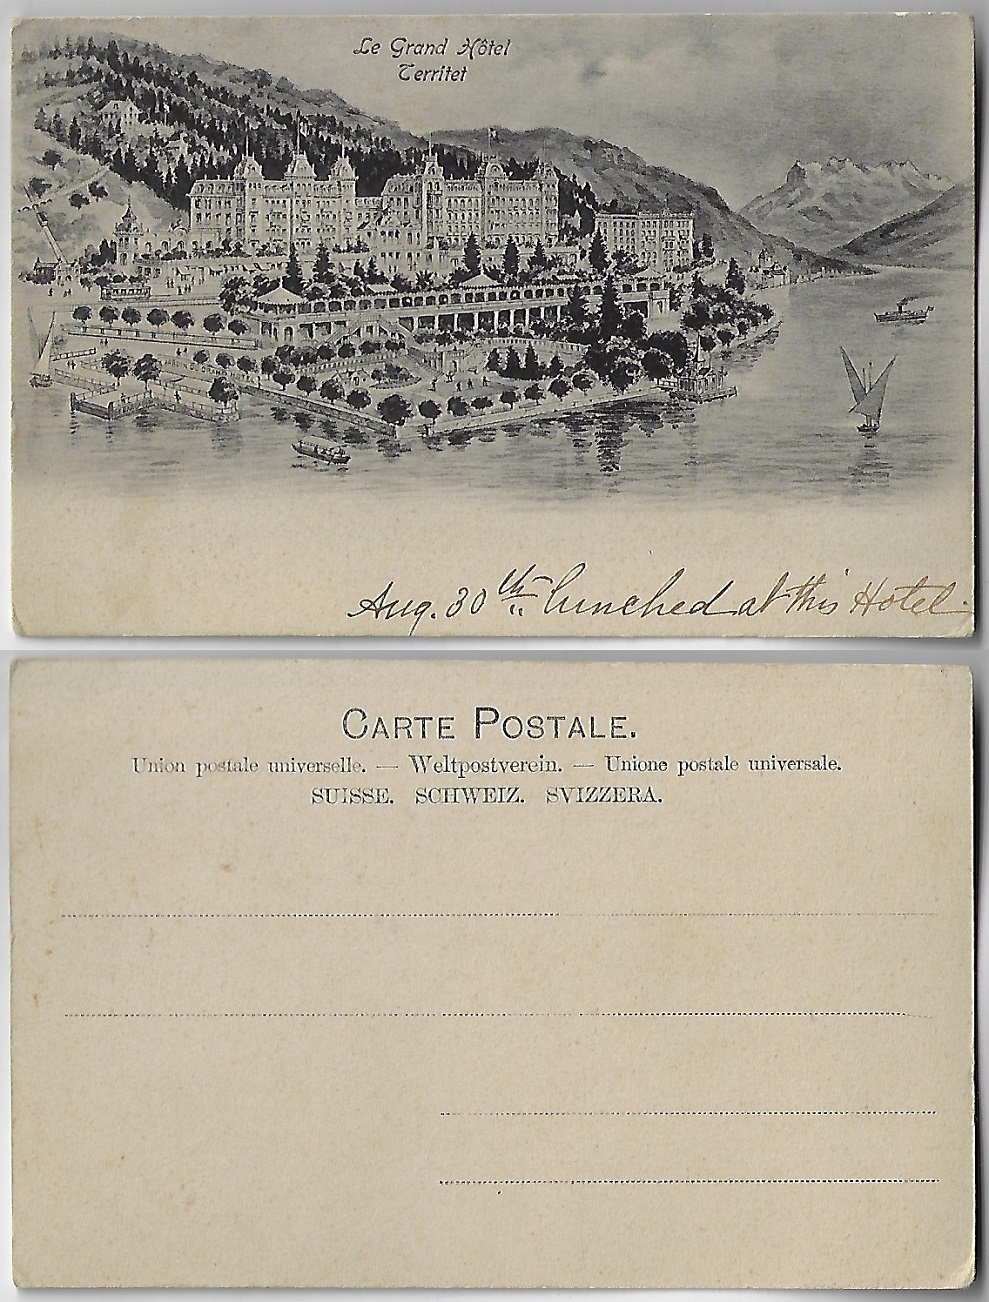 Le Grand Hôtel
Territet
Aug. 30th lunched at this Hotel.
CARTE POSTALE.
Union postale universelle. — Weltpostverein. — Unione postale universale.
SUISSE. SCHWEIZ. SVIZZERA.